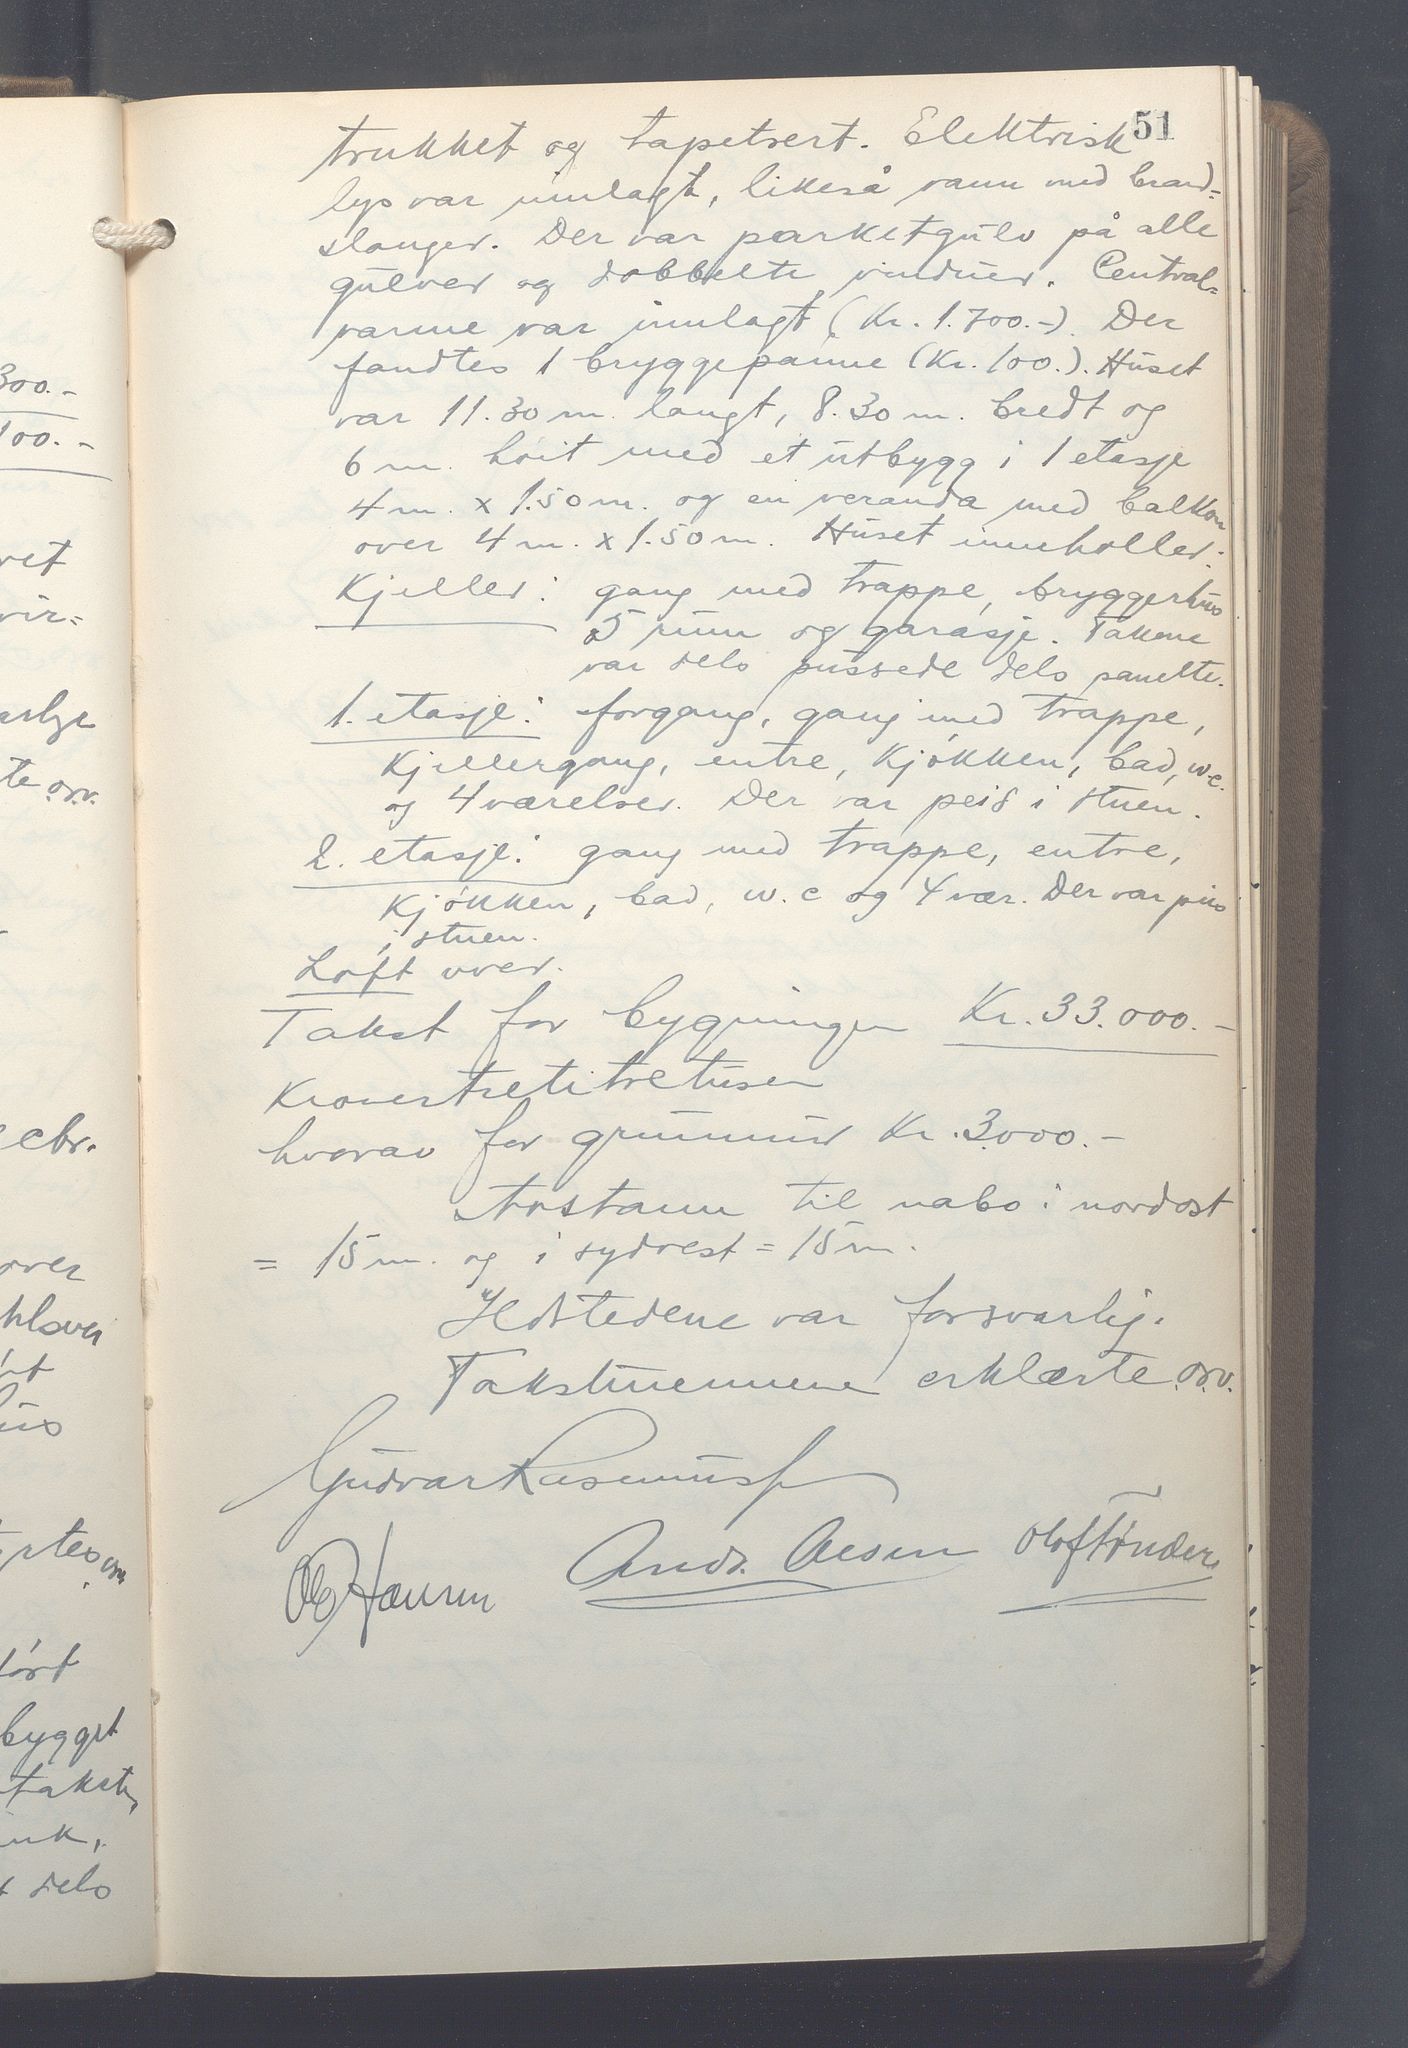 51
trukket og tapetsert. Elektrisk
lys var innlagt, likeså vann med brand=
slanger. Der var parketgulv på alle
gulver og dobbelte vinduer. Central=
varme var innlagt (Kr. 1.700.-). Der
fandtes 1 bryggepanne (Kr. 100.). Huset
var 11.30 m. langt, 8.30 m. bredt og
6 m. höit med et utbygg i 1 etasje
4 m. x 1.50 m. og en veranda med balkon
over 4 m. x 1.50 m. Huset inneholler:
Kjeller: gang med trappe, bryggerhus
5 rum og garasje. Takene
var dels pussede dels panelte.
1. etasje: forgang, gang med trappe,
kjellergang, entre, kjökken, bad, w.c.
og 4 værelser. Der var peis i stuen.
2. etasje: gang med trappe, entre,
kjökken, bad, w.c og 4 vær. Der var peis
i stuen.
Loft over.
Takst for bygningen Kr. 33.000.-
Kronertretitretusen
hvorav for grunmur Kr. 3.000.-
Avstann til nabo i nordost
= 15 m. og i sydvest = 15 m.
Ildstedene var forsvarlig.
Takstmennene erklærte o.s.v.
Gudvar Rasmuss
O Hansen Andr. Olsen Olaf Tönder
300.-
100.-
ret
vir=
te o.s.v.
ebr.
over
ört
bygget
takste,
dels